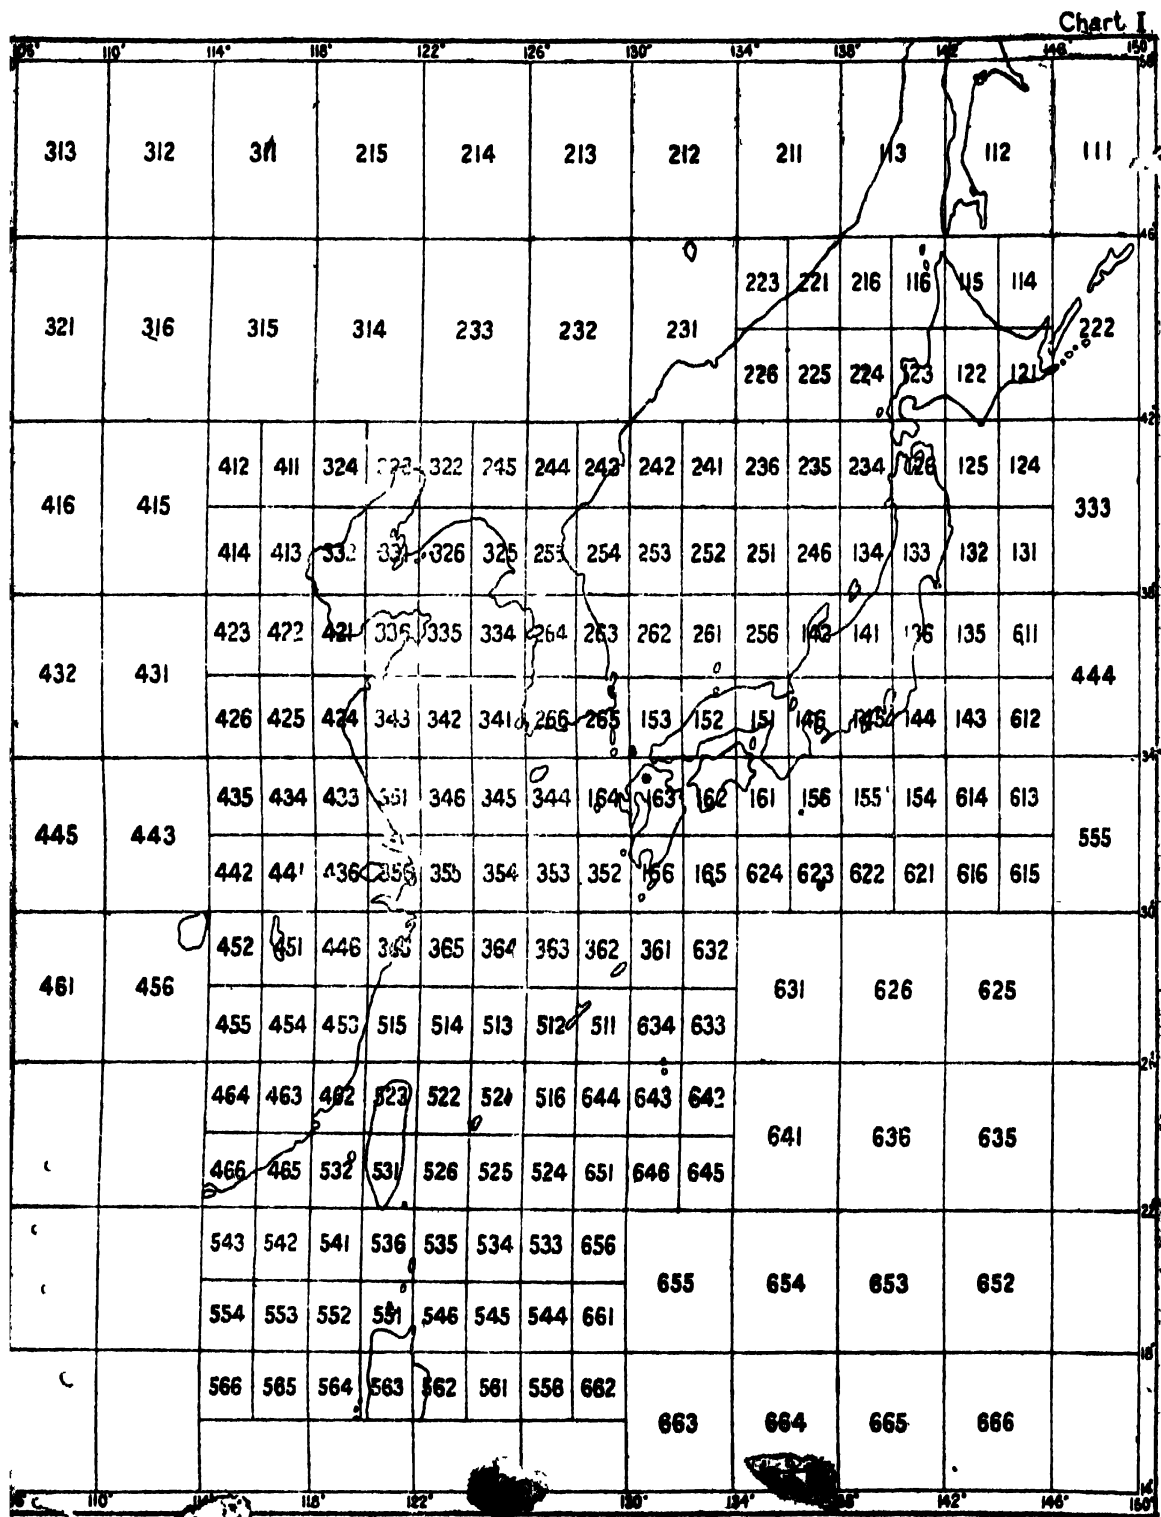 Chart I.
106° 110° 114° 118° 122° 126° 130° 134° 138° 142° 146° 150°
313 312 311 215 214 213 212 211 113 112 111
46°
223 221 216 116 115 114
321 316 315 314 233 232 231 222
226 225 224 123 122 121
42°
412 411 324 323 322 245 244 243 242 241 236 235 234 126 125 124
416 415 333
414 413 332 331 326 325 255 254 253 252 251 246 134 133 132 131
38°
423 422 421 336 335 334 264 263 262 261 256 142 141 136 135 611
432 431 444
426 425 424 343 342 341 266 265 153 152 151 146 145 144 143 612
34°
435 434 433 351 346 345 344 164 163 162 161 156 155 154 614 613
445 443 555
442 441 436 356 355 354 353 352 166 165 624 623 622 621 616 615
30°
452 451 446 366 365 364 363 362 361 632
461 456 631 626 625
455 454 453 515 514 513 512 511 634 633
26°
464 463 462 523 522 521 516 644 643 642
641 636 635
466 465 532 531 526 525 524 651 646 645
22°
543 542 541 536 535 534 533 656
655 654 653 652
554 553 552 551 546 545 544 661
18°
566 565 564 563 562 561 556 662
663 664 665 666
14°
110° 118° 122° 130° 134° 138° 142° 146° 150°